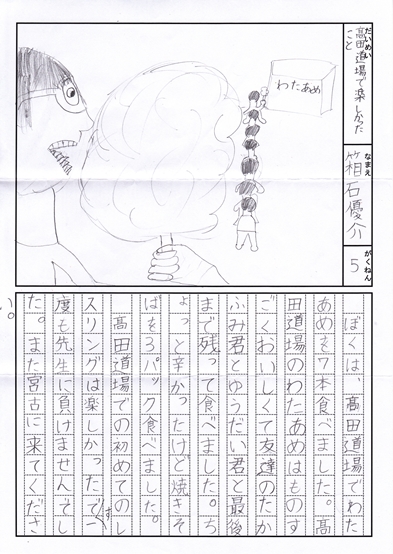 だいめい
高田道場で楽しかった
こと
なまえ
箱石優介
がくねん
5
わたあめ
ぼくは、髙田道場でわた
あめを7本食べました。髙
田道場のわたあめはものす
ごくおいしくて友達のたか
ふみ君とゆうだい君と最後
まで残って食べました。ち
ょっと辛かったけど焼きそ
ばを3パック食べました。
髙田道場での初めてのレ
スリングは楽しかったです。一
度も先生に負けませんでし
た。また宮古に来てくださ
い。